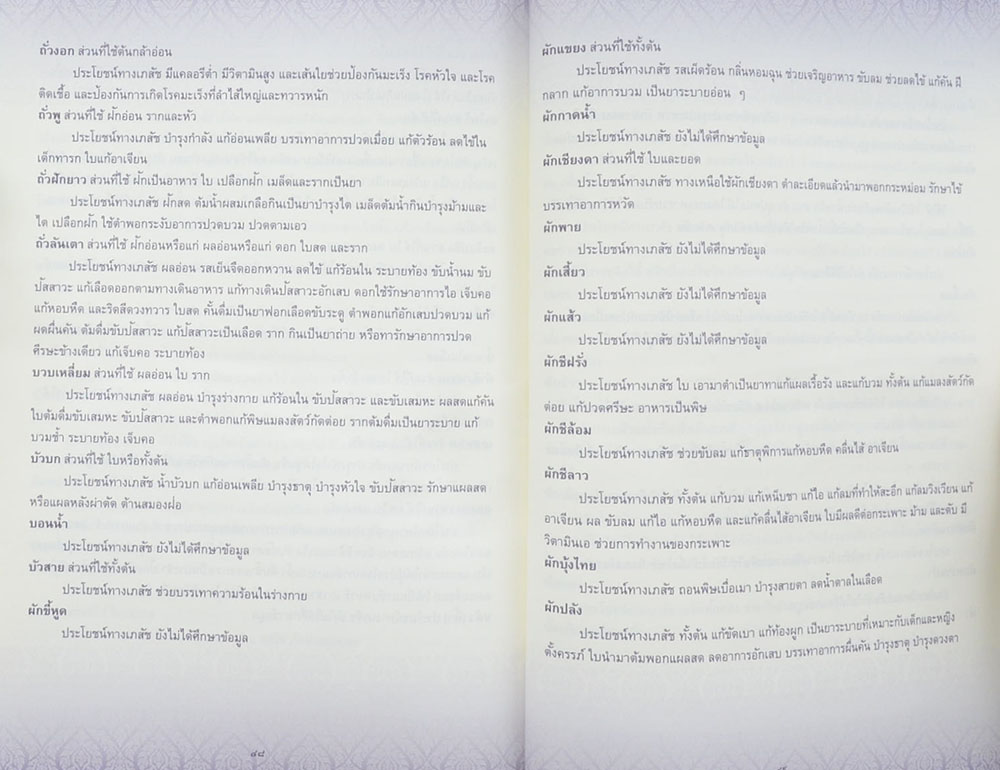 ถั่วงอก ส่วนที่ใช้ต้นกล้าอ่อน
ประโยชน์ทางเภสัช มีแคลอรีต่ำ มีวิตามินสูง และเส้นใยช่วยป้องกันมะเร็ง โรคหัวใจ และโรค
ติดเชื้อ และป้องกันการเกิดโรคมะเร็งที่ลำไส้ใหญ่และทวารหนัก
ถั่วพู ส่วนที่ใช้ ฝักอ่อน รากและหัว
ประโยชน์ทางเภสัช บำรุงกำลัง แก้อ่อนเพลีย บรรเทาอาการปวดเมื่อย แก้ตัวร้อน ลดไข้ใน
เด็กทารก ใบแก้อาเจียน
ถั่วฝักยาว ส่วนที่ใช้ ฝักเป็นอาหาร ใบ เปลือกฝัก เมล็ดและรากเป็นยา
ประโยชน์ทางเภสัช ฝักสด ต้มน้ำผสมเกลือกินเป็นยาบำรุงไต เมล็ดต้มน้ำกินบำรุงม้ามและ
ไต เปลือกฝัก ใช้ตำพอกระงับอาการปวดบวม ปวดตามเอว
ถั่วลันเตา ส่วนที่ใช้ ฝักอ่อนหรือแก่ ผลอ่อนหรือแก่ ดอก ใบสด และราก
ประโยชน์ทางเภสัช ผลอ่อน รสเย็นจืดออกหวาน ลดไข้ แก้ร้อนใน ระบายท้อง ขับน้ำนม ขับ
ปัสสาวะ แก้เลือดออกตามทางเดินอาหาร แก้ทางเดินปัสสาวะอักเสบ ดอกใช้รักษาอาการไอ เจ็บคอ
แก้หอบหืด และริดสีดวงทวาร ใบสด คั้นดื่มเป็นยาฟอกเลือดขับระดู ตำพอกแก้อักเสบปวดบวม แก้
ผดผื่นคัน ต้มดื่มขับปัสสาวะ แก้ปัสสาวะเป็นเลือด ราก กินเป็นยาถ่าย หรือทารักษาอาการปวด
ศีรษะข้างเดียว แก้เจ็บคอ ระบายท้อง
บวบเหลี่ยม ส่วนที่ใช้ ผลอ่อน ใบ ราก
ประโยชน์ทางเภสัช ผลอ่อน บำรุงร่างกาย แก้ร้อนใน ขับปัสสาวะ และขับเสมหะ ผลสดแก้คัน
ใบต้มดื่มขับเสมหะ ขับปัสสาวะ และตำพอกแก้พิษแมลงสัตว์กัดต่อย รากต้มดื่มเป็นยาระบาย แก้
บวมช้ำ ระบายท้อง เจ็บคอ
บัวบก ส่วนที่ใช้ ใบหรือทั้งต้น
ประโยชน์ทางเภสัช น้ำบัวบก แก้อ่อนเพลีย บำรุงธาตุ บำรุงหัวใจ ขับปัสสาวะ รักษาแผลสด
หรือแผลหลังผ่าตัด ต้านสมองฝ่อ
บอนน้ำ
ประโยชน์ทางเภสัช ยังไม่ได้ศึกษาข้อมูล
บัวสาย ส่วนที่ใช้ทั้งต้น
ประโยชน์ทางเภสัช ช่วยบรรเทาความร้อนในร่างกาย
ผักขี้หูด
ประโยชน์ทางเภสัช ยังไม่ได้ศึกษาข้อมูล
๔๘
ผักแขยง ส่วนที่ใช้ทั้งต้น
ประโยชน์ทางเภสัช รสเผ็ดร้อน กลิ่นหอมฉุน ช่วยเจริญอาหาร ขับลม ช่วยลดไข้ แก้คัน ฝี
กลาก แก้อาการบวม เป็นยาระบายอ่อน ๆ
ผักกาดน้ำ
ประโยชน์ทางเภสัช ยังไม่ได้ศึกษาข้อมูล
ผักเชียงดา ส่วนที่ใช้ ใบและยอด
ประโยชน์ทางเภสัช ทางเหนือใช้ผักเชียงดา ตำละเอียดแล้วนำมาพอกกระหม่อม รักษาไข้
บรรเทาอาการหวัด
ผักพาย
ประโยชน์ทางเภสัช ยังไม่ได้ศึกษาข้อมูล
ผักเสี้ยว
ประโยชน์ทางเภสัช ยังไม่ได้ศึกษาข้อมูล
ผักแส้ว
ประโยชน์ทางเภสัช ยังไม่ได้ศึกษาข้อมูล
ผักชีฝรั่ง
ประโยชน์ทางเภสัช ใบ เอามาตำเป็นยาทาแก้แผลเรื้อรัง และแก้บวม ทั้งต้น แก้แมลงสัตว์กัด
ต่อย แก้ปวดศรีษะ อาหารเป็นพิษ
ผักชีล้อม
ประโยชน์ทางเภสัช ช่วยขับลม แก้ธาตุพิการแก้หอบหืด คลื่นไส้ อาเจียน
ผักชีลาว
ประโยชน์ทางเภสัช ทั้งต้น แก้บวม แก้เหน็บชา แก้ไอ แก้ลมที่ทำให้สะอึก แก้ลมวิงเวียน แก้
อาเจียน ผล ขับลม แก้ไอ แก้หอบหืด และแก้คลื่นไส้อาเจียน ใบมีผลดีต่อกระเพาะ ม้าม และตับ มี
วิตามินเอ ช่วยการทำงานของกระเพาะ
ผักบุ้งไทย
ประโยชน์ทางเภสัช ถอนพิษเบื่อเมา บำรุงสายตา ลดน้ำตาลในเลือด
ผักปลัง
ประโยชน์ทางเภสัช ทั้งต้น แก้ขัดเบา แก้ท้องผูก เป็นยาระบายที่เหมาะกับเด็กและหญิง
ตั้งครรภ์ ใบนำมาต้มพอกแผลสด ลดอาการอักเสบ บรรเทาอาการผื่นคัน บำรุงธาตุ บำรุงดวงตา